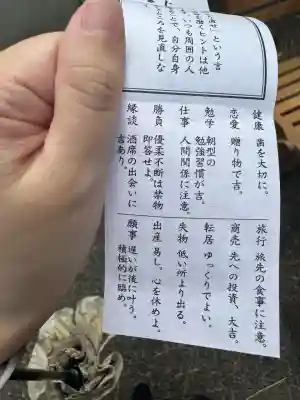 返せ」という言
き磨くヒントは他
、いつも周囲の人
ることで、自分自身
ところを見直しな
健康 歯を大切に。
恋愛 贈り物で吉。
勉学 朝型の
勉強習慣が吉。
仕事 人間関係に注意。
勝負 優柔不断は禁物
即答せよ。
縁談 酒席の出会いに
吉あり。
旅行 旅先の食事に注意。
商売 先への投資、大吉。
転居 ゆっくりでよい。
失物 低い所より出る。
出産 易し。心を休めよ。
願事 遅いが後に叶う。
積極的に臨め。